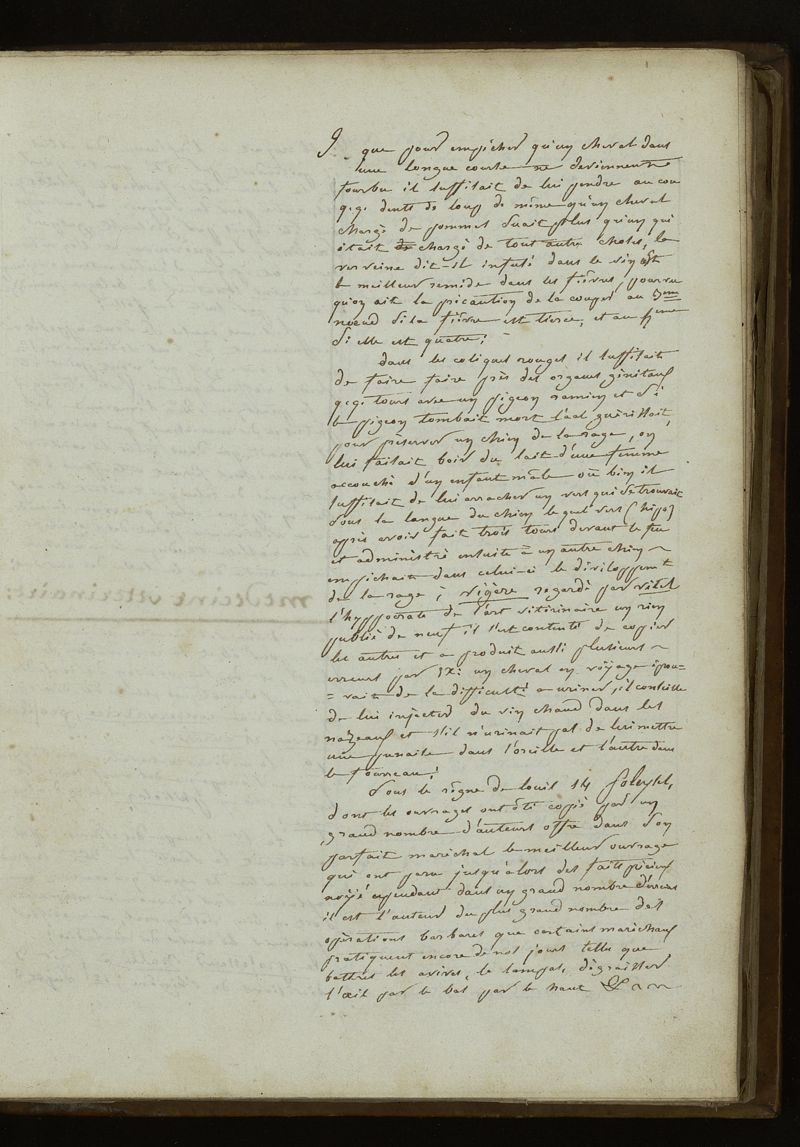 9. que pour empêcher qu'un cheval dans
une longue course ne deviennent
fourbu il suffisait de lui pendre au cou
q.q. dents de loup de même qu'un cheval
chargé de pommes suait plus qu'un qui
était de chargé de tout autre choses, la
verveine dit-il infusé dans le vin est
le meilleur remide dans les fièvres, pourvu
qu'on ait la précaution de la couper au 3eme
nœud si la fièvre est tierce, et au 4eme
si elle est quatre;
dans les coliques rouges il suffisait
de faire faire près des organes génitaux
q.q. tours avec un pigeon ramier et si
le pigeon tombait mort l'ael guérissait,
pour préserver un chien de la rage, on
lui faisait boir du lait d'une femme
accouché d'un enfant mâle où bien il
suffisait de lui arracher un vers qui se trouvait
sous la langue du chien lequel vers
après avoir fait trois tours devant le feu
et administré ensuite à un autre chien ~
empêchait dans celui-ci le développemt
de la rage; végère regardé par vitet
l'hyppocrate de l'art vétirinaire un rien
publié de neuf, il s'est contenté de copier
les autres et a produit aussi plusieurs ~
erreurs par Ex: un cheval en voyage épou=
= vait de la difficulté a uriner, il conseille
de lui injecter du vin chaud dans les
nazeaux et s'il n'urinait pas de lui mettre
une punaise dans l'oreille et l'autre dans
le fourreau;
Sous le règne de louis 14 Soleysel,
dont les ouvrages ont été copié par un
grand nombre d'auteurs offre dans son
parfait maréchal le meilleur ouvrage
qui ont paru jusqu'alors des faits précieux
noyé cependant dans un grand nombre d'erreurs
il est l'auteur du plus grand nombre des
opérations barbares que certains maréchaux
pratiquent encore de nos jours telles que
battres les avives, le lampas, dégraisser
l'œil par le bas par le haut &
médecine vétérinaire;